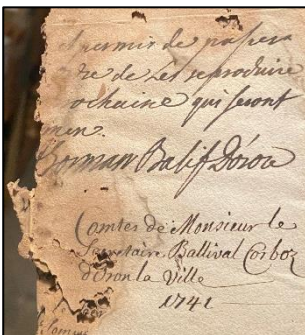 permis de passer
re de les reproduire
ochaine qui seront
men.
Gorman Balif Doron
Comtes de Monsieur le
Secretaire Ballival Corboz
d'Oron la Ville
1741